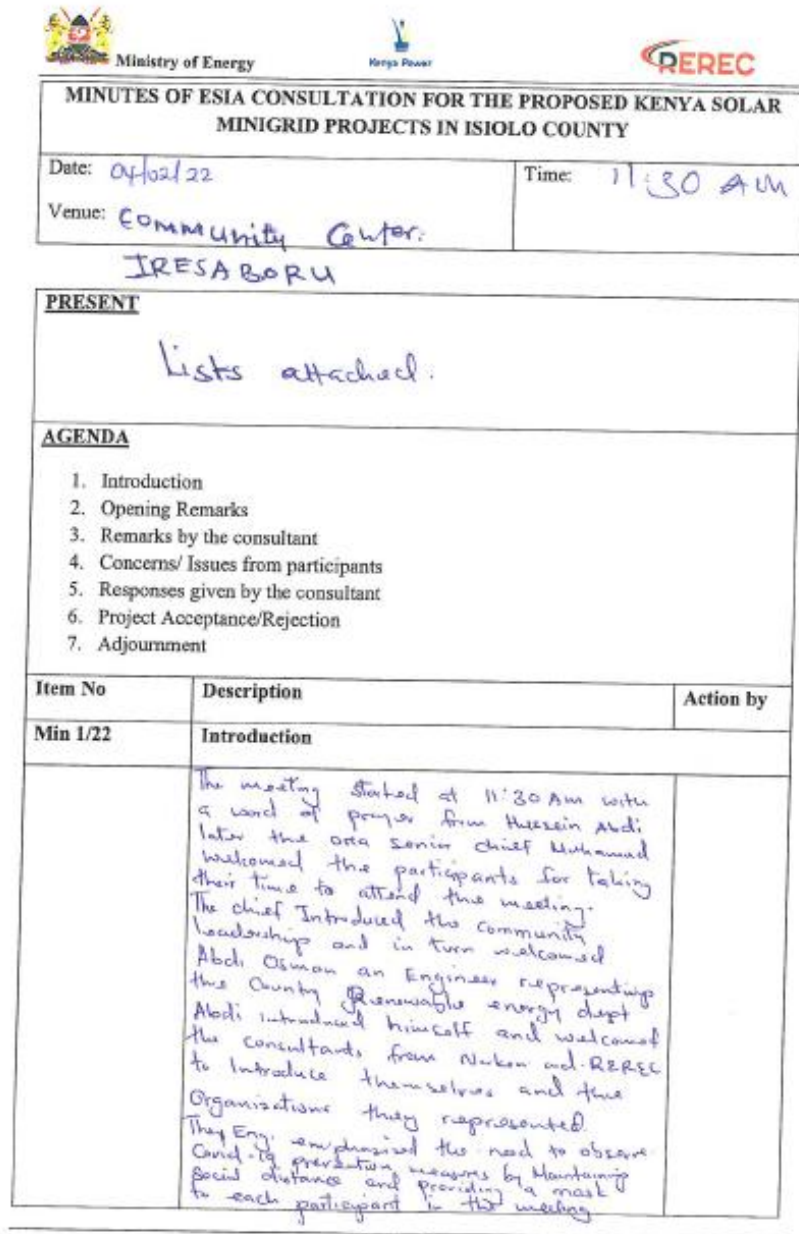 Ministry of Energy
Kenya Power
REREC
MINUTES OF ESIA CONSULTATION FOR THE PROPOSED KENYA SOLAR
MINIGRID PROJECTS IN ISIOLO COUNTY
Date: 04/02/22
Time: 11:30 AM
Venue: Community Center.
IRESABORU
PRESENT
Lists attached.
AGENDA
1. Introduction
2. Opening Remarks
3. Remarks by the consultant
4. Concerns/ Issues from participants
5. Responses given by the consultant
6. Project Acceptance/Rejection
7. Adjournment
Item No Description Action by
Min 1/22 Introduction
The meeting started at 11:30 Am with
a word of prayer from Hussein Abdi
later the area senior chief Muhamud
welcomed the participants for taking
their time to attend the meeting.
The chief Introduced the community
leadership and in turn welcomed
Abdi Osman an Engineer representing
the County Renewable energy dept
Abdi introduced himself and welcomed
the consultants from and REREC
to Introduce themselves and the
Organisations they represented.
They Eng. emphasised the need to observe
Covid-19 prevention measures by Maintaining
social distance and providing a mask
to each participant in the meeting